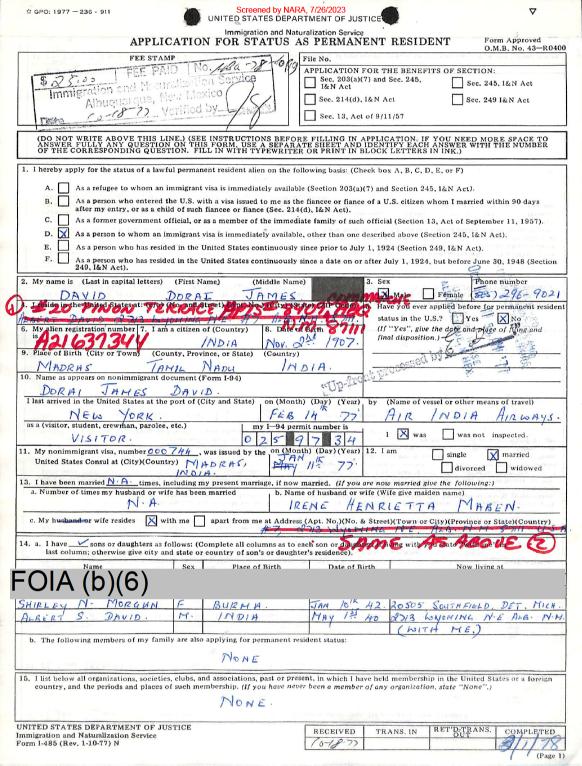 ☆ GPO: 1977 - 236 - 911
Screened by NARA, 7/26/2023
UNITED STATES DEPARTMENT OF JUSTICE
Immigration and Naturalization Service
APPLICATION FOR STATUS AS PERMANENT RESIDENT
Form Approved
O.M.B. No. 43-R0400
FEE STAMP
$25.00 FEE PAID No.
Immigration and Service
Albuquerque, New Mexico
10-18-77 Verified by
File No.
APPLICATION FOR THE BENEFITS OF SECTION:
Sec. 203(a)(7) and Sec. 245, I&N Act
Sec. 245, I&N Act
Sec. 214(d), I&N Act
Sec. 249 I&N Act
Sec. 13, Act of 9/11/57
(DO NOT WRITE ABOVE THIS LINE.) (SEE INSTRUCTIONS BEFORE FILLING IN APPLICATION. IF YOU NEED MORE SPACE TO
ANSWER FULLY ANY QUESTION ON THIS FORM, USE A SEPARATE SHEET AND IDENTIFY EACH ANSWER WITH THE NUMBER
OF THE CORRESPONDING QUESTION. FILL IN WITH TYPEWRITER OR PRINT IN BLOCK LETTERS IN INK.)
1. I hereby apply for the status of a lawful permanent resident alien on the following basis: (Check box A, B, C, D, E, or F)
A. As a refugee to whom an immigrant visa is immediately available (Section 203(a)(7) and Section 245, I&N Act).
B. As a person who entered the U.S. with a visa issued to me as the fiancee or fiance of a U.S. citizen whom I married within 90 days
after my entry, or as a child of such fiancee or fiance (Sec. 214(d), I&N Act).
C. As a former government official, or as a member of the immediate family of such official (Section 13, Act of September 11, 1957).
D. X As a person to whom an immigrant visa is immediately available, other than one described above (Section 245, I&N Act).
E. As a person who has resided in the United States continuously since prior to July 1, 1924 (Section 249, I&N Act).
F. As a person who has resided in the United States continuously since a date on or after July 1, 1924, but before June 30, 1948 (Section
249, I&N Act).
2. My name is (Last in capital letters) (First Name) (Middle Name)
DAVID DORAI JAMES
3. Sex
X Male Female
Phone number
(505) 296-9021
#20 PINON TERRACE APTS
87111
Have you ever applied for permanent resident
status in the U.S.? Yes X No
(If "Yes", give the date and place of filing and
final disposition.)
6. My alien registration number
A21637344
7. I am a citizen of (Country)
INDIA
8. Date of
Nov. 2nd 1907.
9. Place of Birth (City or Town) (County, Province, or State) (Country)
MADRAS TAMIL NADU INDIA.
"Up-front processed by
10. Name as appears on nonimmigrant document (Form I-94)
DORAI JAMES DAVID.
I last arrived in the United States at the port of (City and State) on (Month) (Day) (Year) by (Name of vessel or other means of travel)
NEW YORK. FEB 14th 77 AIR INDIA AIRWAYS.
as a (visitor, student, crewman, parolee, etc.) my I-94 permit number is
VISITOR. 0 2 5 9 7 3 4 I X was was not inspected.
11. My nonimmigrant visa, number 000744, was issued by the on (Month) (Day) (Year)
United States Consul at (City)(Country) MADRAS, INDIA. JAN 11th 77.
12. I am single X married
divorced widowed
13. I have been married N.A. times, including my present marriage, if now married. (If you are now married give the following:)
a. Number of times my husband or wife has been married b. Name of husband or wife (Wife give maiden name)
N.A IRENE HENRIETTA MABEN.
c. My husband or wife resides X with me apart from me at Address (Apt. No.) (No. & Street) (Town or City) (Province or State) (Country)
SAME AS ABOVE (2)
14. a. I have sons or daughters as follows: (Complete all columns as to each son or daughter;
last column; otherwise give city and state or country of son's or daughter's residence).
Name Sex Place of Birth Date of Birth Now living at
FOIA (b)(6)
SHIRLEY N. MORGAN F BURMA. JAN 10th 42. 20505 SOUTHFIELD, DET, MICH.
ALBERT S. DAVID. M. INDIA MAY 1st 40 2713 WYOMING N.E ALB. N.M.
(WITH ME.)
b. The following members of my family are also applying for permanent resident status:
NONE
15. I list below all organizations, societies, clubs, and associations, past or present, in which I have held membership in the United States or a foreign
country, and the periods and places of such membership. (If you have never been a member of any organization, state "None".)
NONE.
UNITED STATES DEPARTMENT OF JUSTICE
Immigration and Naturalization Service
Form I-485 (Rev. 1-10-77) N
RECEIVED TRANS. IN RET'D-TRANS. OUT COMPLETED
10-18-77
(Page 1)